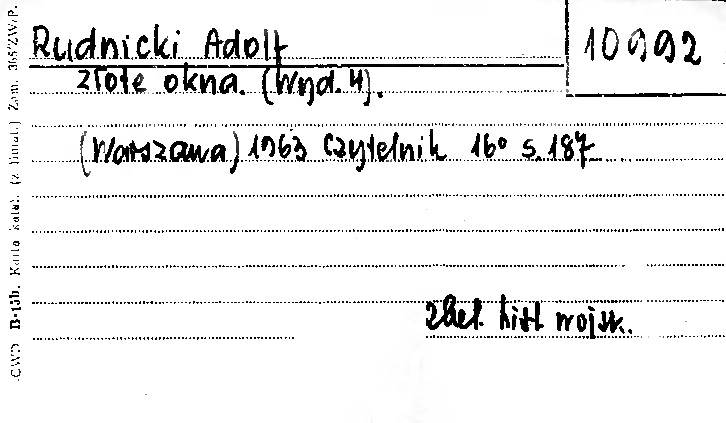 Rudnicki Adolf
10992
Złote okna. (Wyd. 4).
(Warszawa) 1963 Czytelnik 16° s. 187
hist wojsk.
CWD B-13b. Karta katal. Zam. 365/ZW/P.